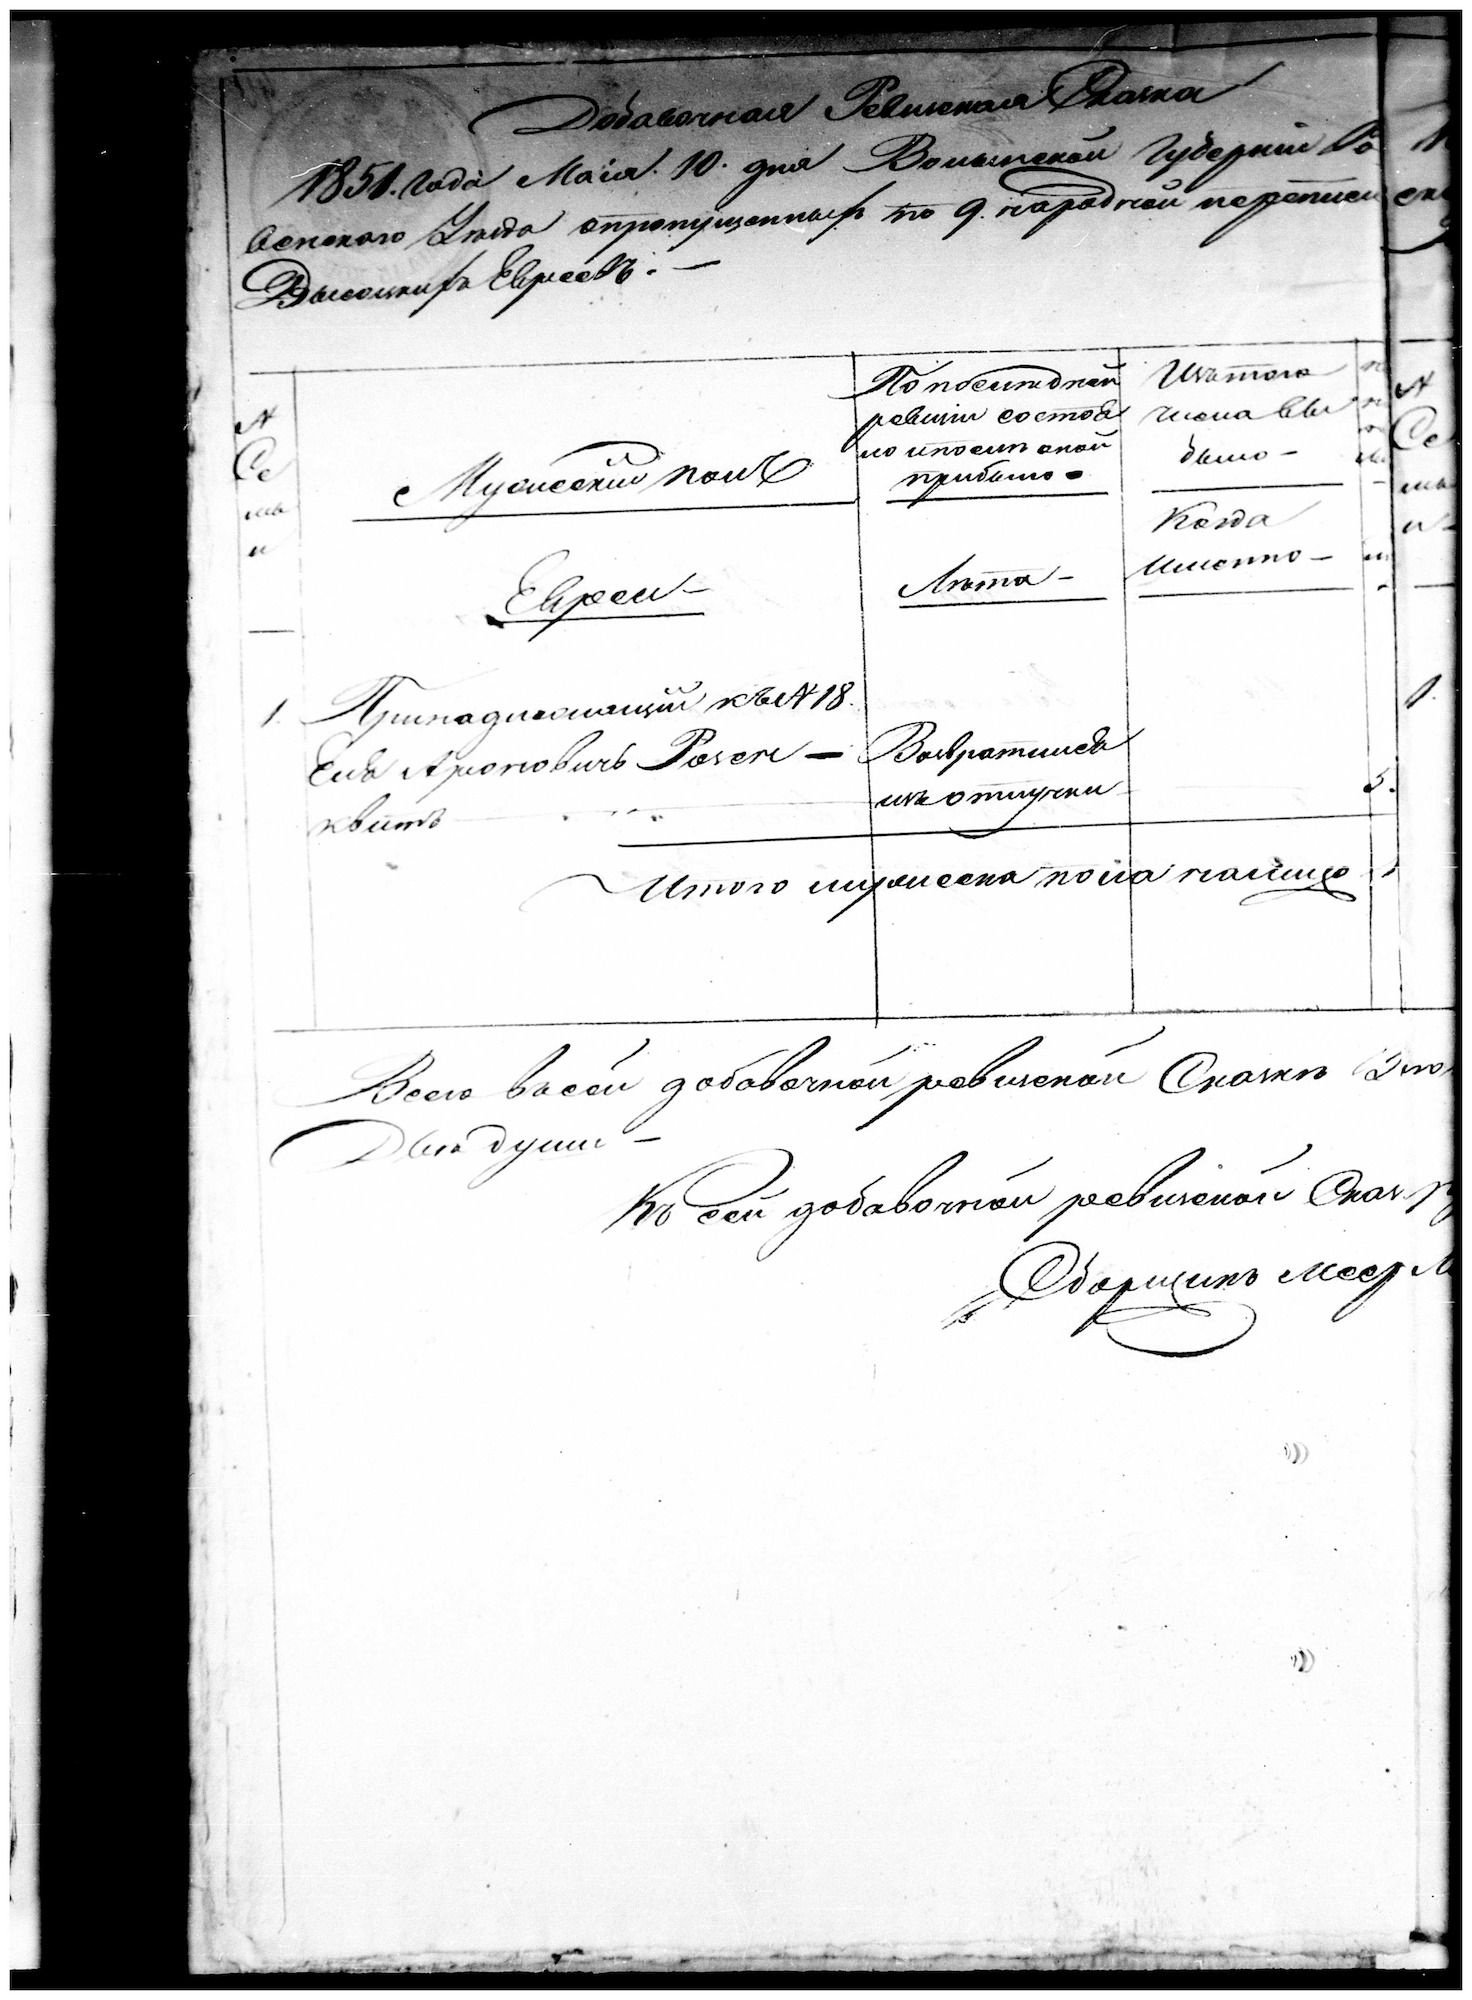 Добавочная Ревизская Сказка
1851. года Маія. 10. дня Волынской Губерніи Ро
венскаго Уезда о пропущенныхъ по 9. народной переписи
Высоцкихъ Евреевъ. —
№
Се
мьи
Мужескій полъ
Евреи —
По последней
ревизіи состоя
ло и после оной
прибыло
Лета —
Изъ того
числа вы
было —
Когда
именно —
1. Принадлежащій къ № 18.
Елья Ароновичъ Розен — Возвратился
квитъ изъ отлучки
Итого мужеска пола налицо
Всего въ сей добавочной ревизской Сказке
Две души —
Къ сей добавочной ревизской Сказ
Сборщикъ Меер